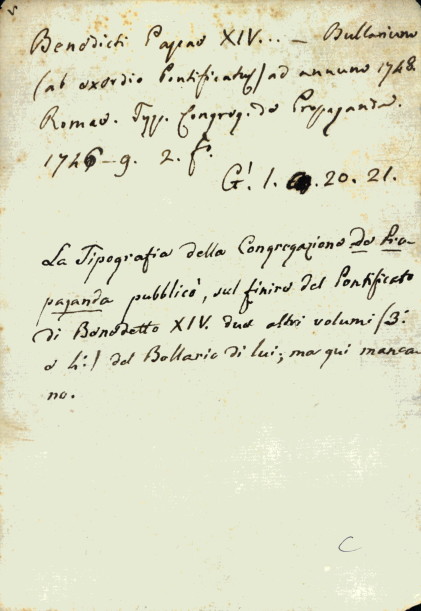 Benedicti Papae XIV... — Bullarium
(ab exordio Pontificatus) ad annum 1748.
Romae. Typ. Congreg. de Propaganda.
1746–9. 2. f.
G. 1. 20. 21.
La Tipografia della Congregazione de Pro-
paganda pubblicò, sul finire del Pontificato
di Benedetto XIV. due altri volumi (3.
e 4.) del Bollario di lui; ma qui manca-
no.
C